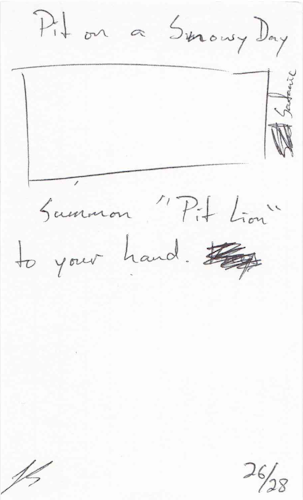 Pit on a Snowy Day
Sadanic
Summon "Pit Lion"
to your hand.
26/28